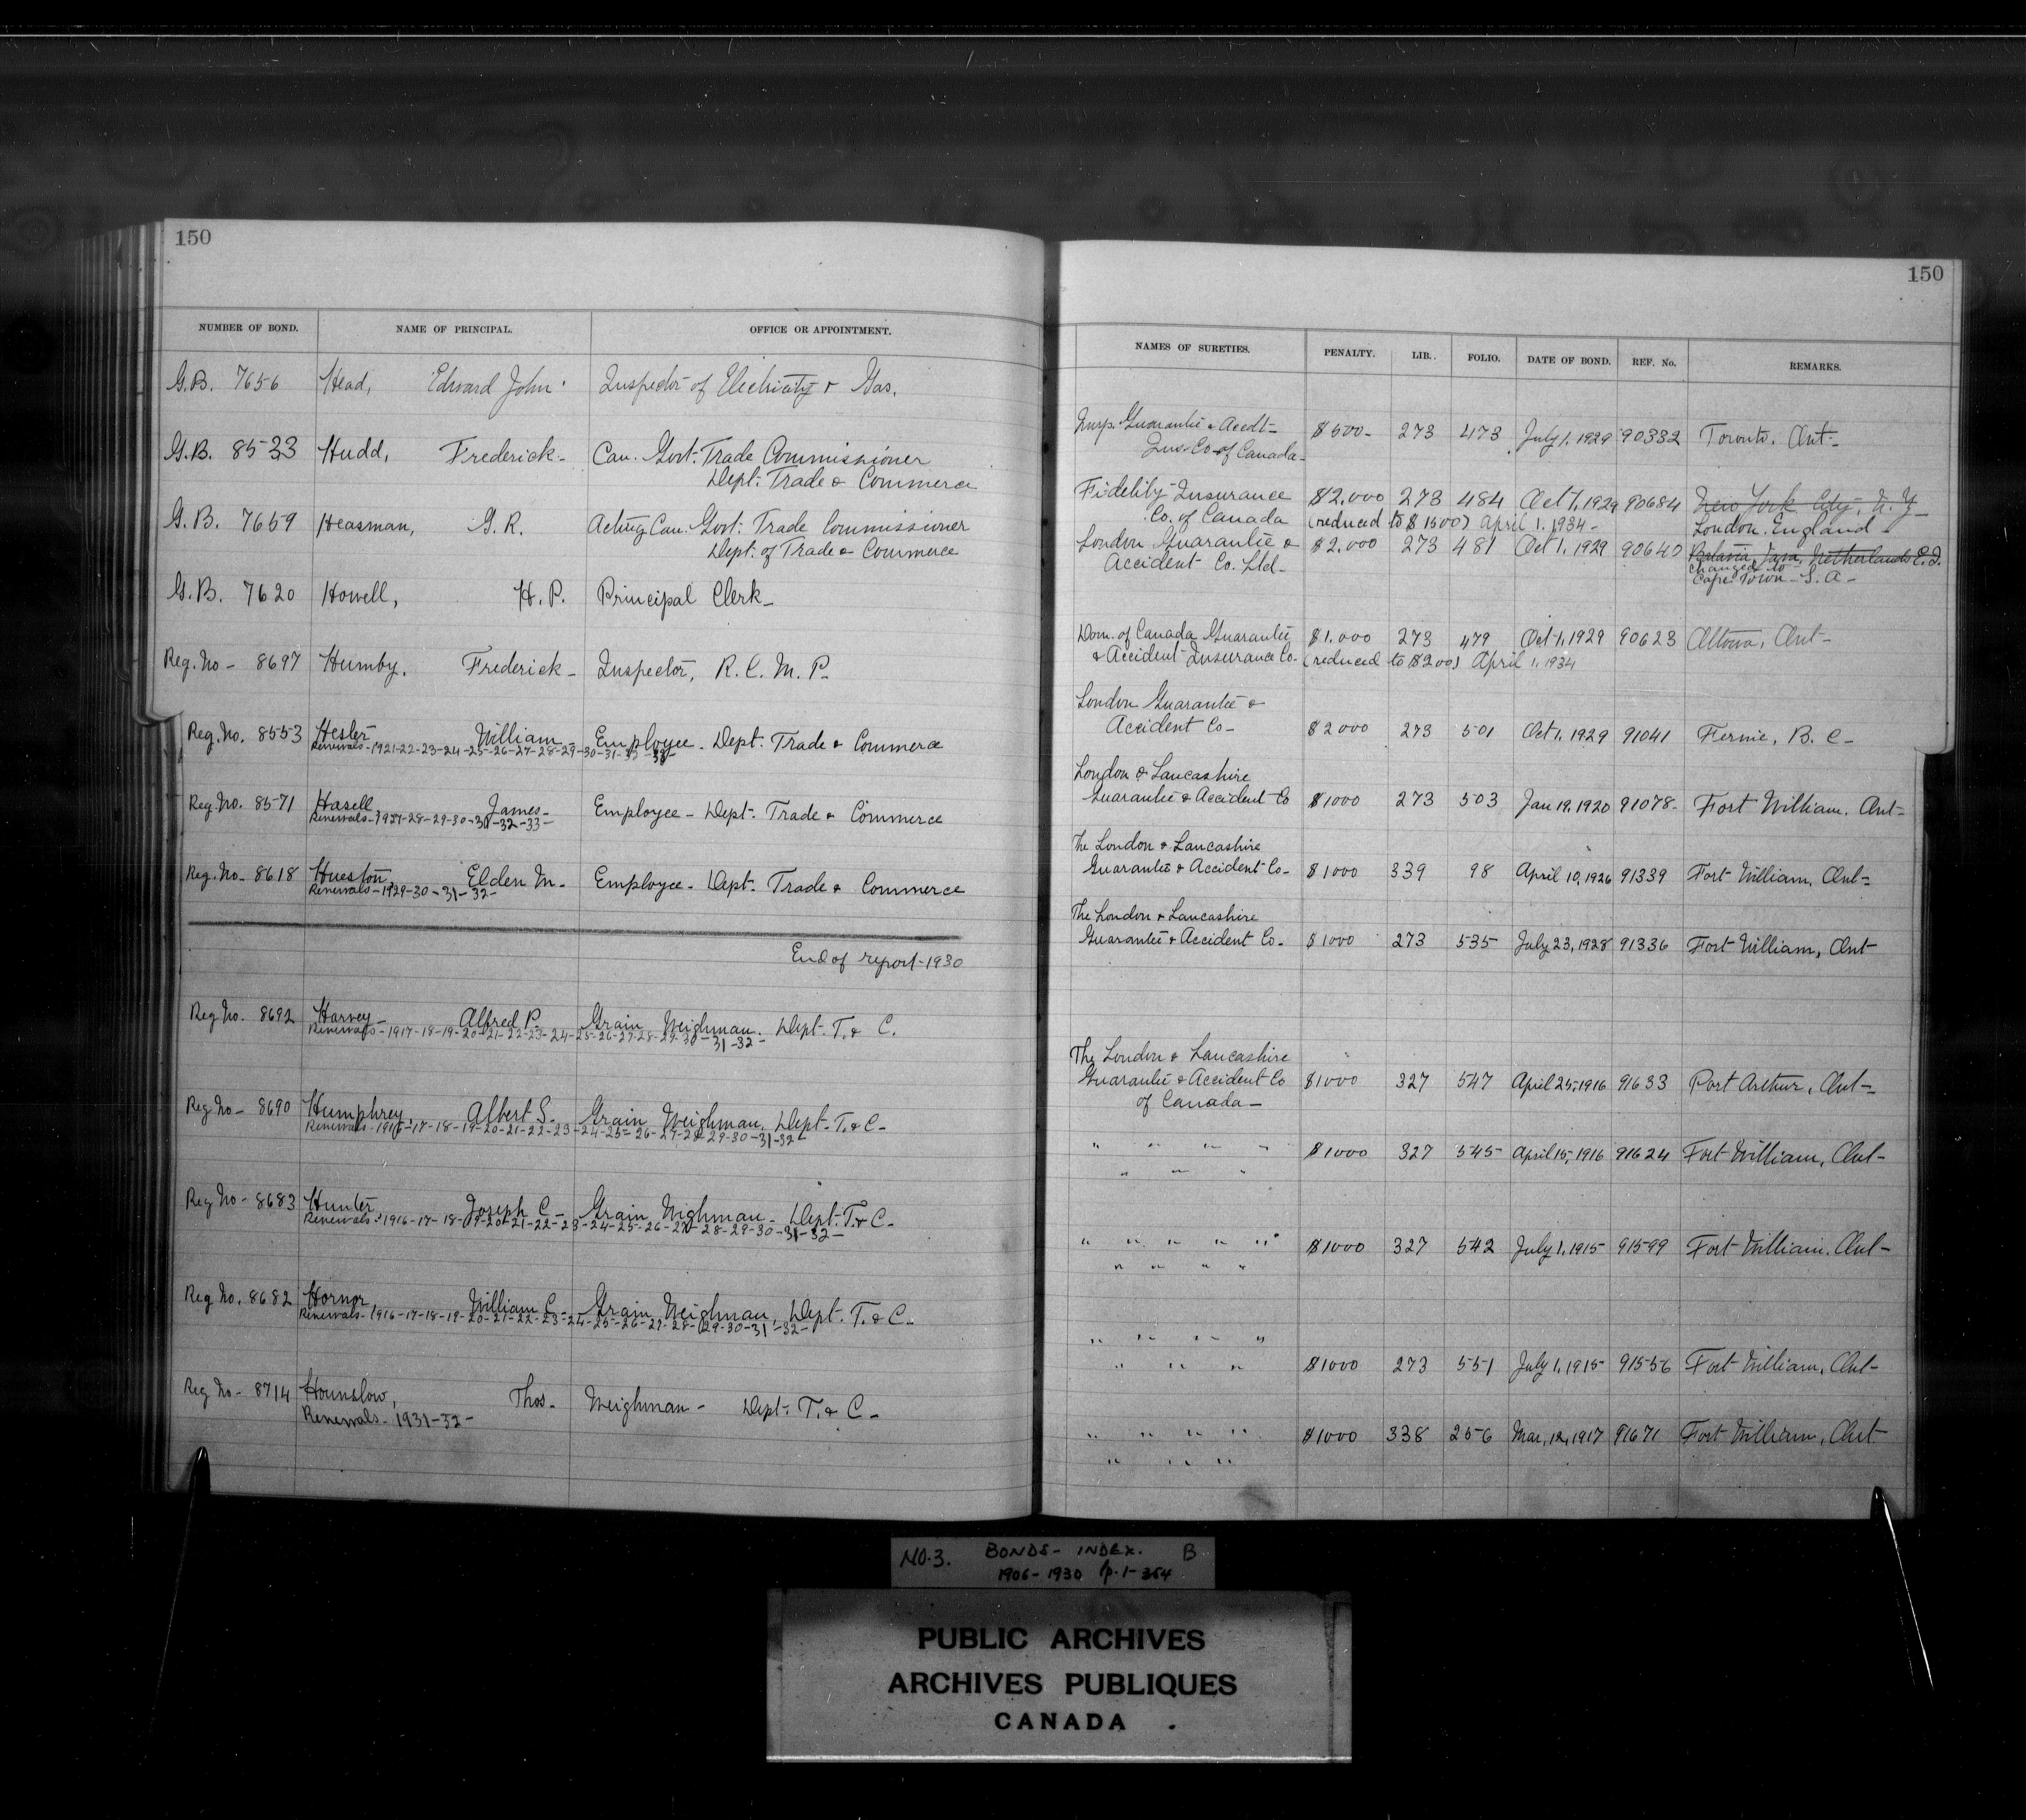 150
NUMBER OF BOND. NAME OF PRINCIPAL. OFFICE OR APPOINTMENT.
G.B. 7656 Head, Edward John Inspector of Electricity & Gas.
G.B. 8533 Hudd, Frederick- Can. Govt. Trade Commissioner
Dept. Trade & Commerce
G.B. 7659 Heasman, G.R. Acting Can. Govt. Trade Commissioner
Dept. of Trade & Commerce
G.B. 7620 Howell, H.P. Principal Clerk-
Reg. No- 8697 Humby, Frederick- Inspector, R.C.M.P.
Reg. No. 8553 Hesler William- Employee- Dept. Trade & Commerce
Renewals-1921-22-23-24-25-26-27-28-29-30-31-32-33-
Reg No. 8571 Hasell, James- Employee- Dept. Trade & Commerce
Renewals-1927-28-29-30-31-32-33-
Reg. No- 8618 Hueston, Elden M- Employee- Dept. Trade & Commerce
Renewals-1929-30-31-32-
End of report-1930
Reg No. 8692 Harvey- Alfred P. Grain Weighman. Dept. T. & C.
Renewals-1917-18-19-20-21-22-23-24-25-26-27-28-29-30-31-32-
Reg No- 8690 Humphrey, Albert S. Grain Weighman, Dept. T. & C-
Renewals-1916-17-18-19-20-21-22-23-24-25-26-27-28-29-30-31-32-
Reg No- 8683 Hunter, Joseph C- Grain Wighman- Dept. T. & C-
Renewals-1916-17-18-19-20-21-22-23-24-25-26-27-28-29-30-31-32-
Reg No. 8682 Hornor William C- Grain Weighman, Dept. T. & C-
Renewals-1916-17-18-19-20-21-22-23-24-25-26-27-28-29-30-31-32-
Reg No- 8714 Hounslow, Thos- Weighman- Dept. T. & C-
Renewals-1931-32-
150
NAMES OF SURETIES. PENALTY. LIB. FOLIO. DATE OF BOND. REF. No. REMARKS.
Guarantee & Accdt- $500- 273 473 July 1, 1929 90332 Toronto, Ont-
Ins. Co. of Canada-
Fidelity Insurance $2,000 273 484 Oct 1, 1929 90684 New York City, N.Y-
Co. of Canada (reduced to $1500) April 1, 1934- London, England-
London Guarantee & $2,000 273 481 Oct 1, 1929 90640 Batavia, Java, Netherlands E.I.
Accident Co. Ltd- changed to
Cape Town- S.A-
Dom. of Canada Guarantee $1,000 273 479 Oct 1, 1929 90623 Ottawa, Ont-
& Accident Insurance Co- (reduced to $200) April 1, 1934
London Guarantee &
Accident Co- $2000 273 501 Oct 1, 1929 91041 Fernie, B.C-
London & Lancashire
Guarantee & Accident Co $1000 273 503 Jan 19, 1920 91078- Fort William, Ont-
The London & Lancashire
Guarantee & Accident Co- $1000 339 98 April 10, 1926 91339 Fort William, Ont-
The London & Lancashire
Guarantee & Accident Co- $1000 273 535 July 23, 1928 91336 Fort William, Ont
The London & Lancashire
Guarantee & Accident Co $1000 327 547 April 25, 1916 91633 Port Arthur, Ont-
of Canada-
" " " " $1000 327 545 April 15, 1916 91624 Fort William, Ont-
" " "
" " " " " $1000 327 542 July 1, 1915 91599 Fort William, Ont-
" " " "
" " " "
" " " $1000 273 551 July 1, 1915 91556 Fort William, Ont-
" " " " $1000 338 256 Mar, 12, 1917 91671 Fort William, Ont
" " "
NO.3. BONDS- INDEX. B
1906-1930 p.1-354
PUBLIC ARCHIVES
ARCHIVES PUBLIQUES
CANADA